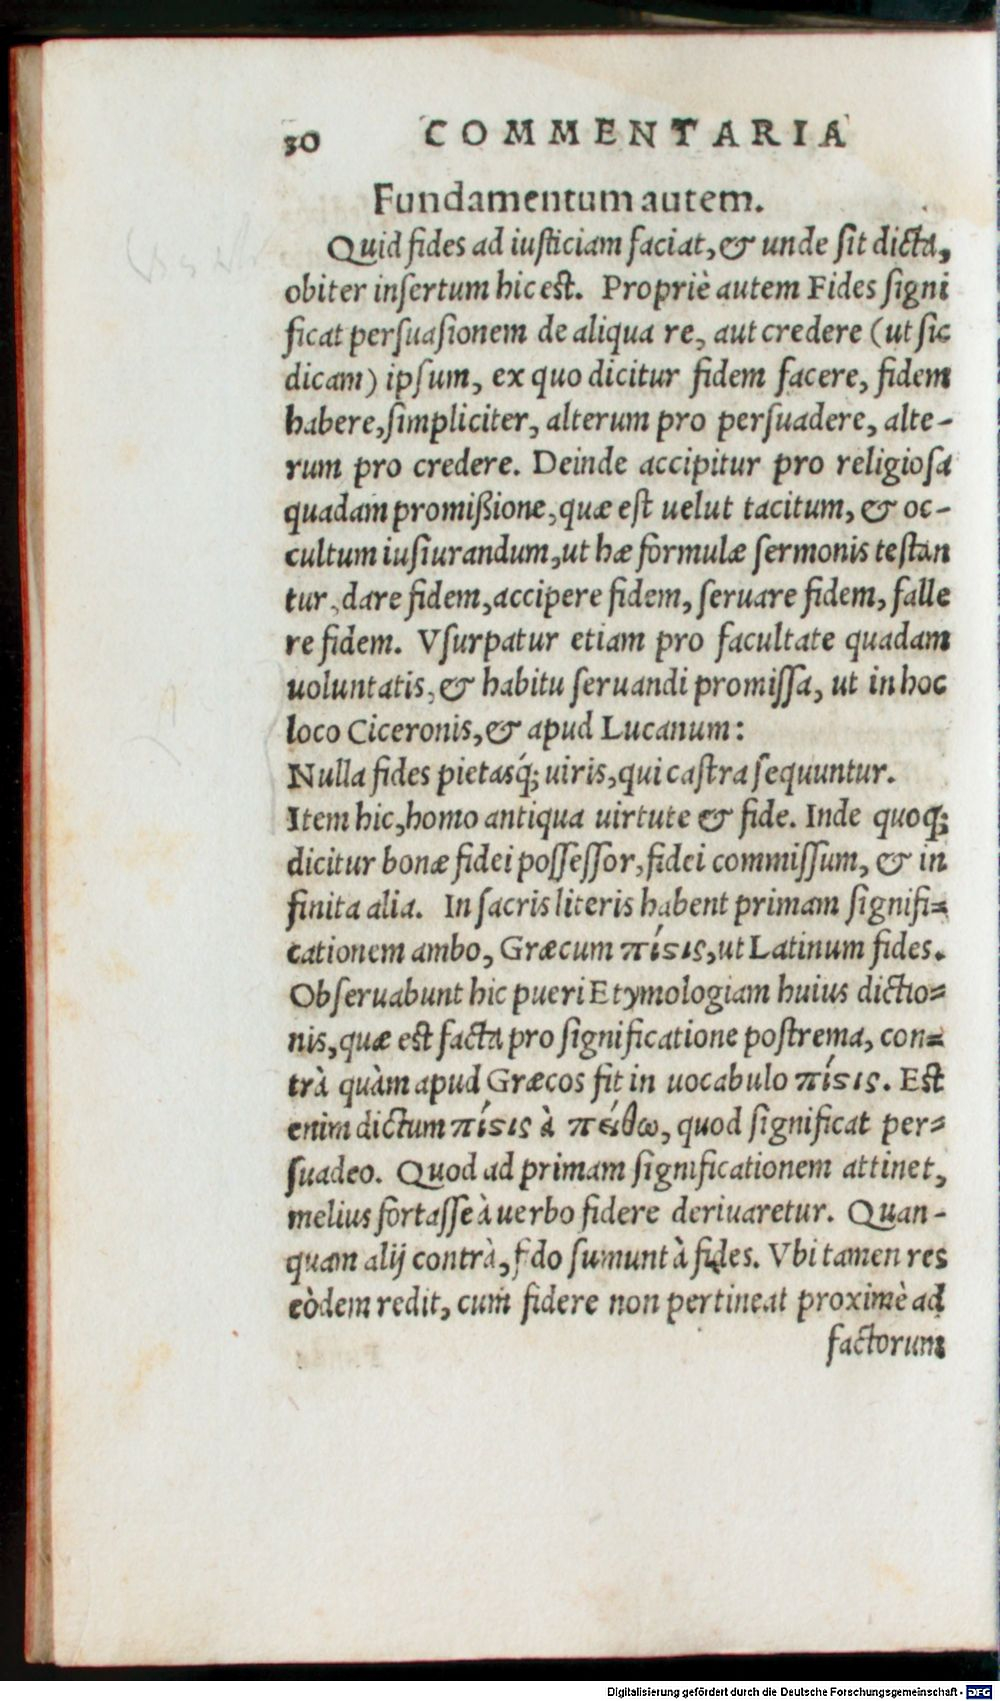 30 COMMENTARIA
Fundamentum autem.
Quid fides ad iusticiam faciat, & unde sit dicta,
obiter insertum hic est. Propriè autem Fides signi
ficat persuasionem de aliqua re, aut credere (ut sic
dicam) ipsum, ex quo dicitur fidem facere, fidem
habere, simpliciter, alterum pro persuadere, alte-
rum pro credere. Deinde accipitur pro religiosa
quadam promißione, quæ est uelut tacitum, & oc-
cultum iusiurandum, ut hæ formulæ sermonis testan
tur, dare fidem, accipere fidem, seruare fidem, falle
re fidem. Vsurpatur etiam pro facultate quadam
uoluntatis, & habitu seruandi promissa, ut in hoc
loco Ciceronis, & apud Lucanum:
Nulla fides pietasq́; uiris, qui castra sequuntur.
Item hic, homo antiqua uirtute & fide. Inde quoq;
dicitur bonæ fidei possessor, fidei commissum, & in
finita alia. In sacris literis habent primam signifi-
cationem ambo, Græcum πίϛις, ut Latinum fides.
Obseruabunt hic pueri Etymologiam huius dictio-
nis, quæ est facta pro significatione postrema, con-
trà quàm apud Græcos fit in uocabulo πίϛις. Est
enim dictum πίϛις à πείθω, quod significat per-
suadeo. Quod ad primam significationem attinet,
melius fortasse à uerbo fidere deriuaretur. Quan-
quam alij contrà, fido sumunt à fides. Vbi tamen res
eòdem redit, cum fidere non pertineat proximè ad
factorum
Digitalisierung gefördert durch die Deutsche Forschungsgemeinschaft - DFG